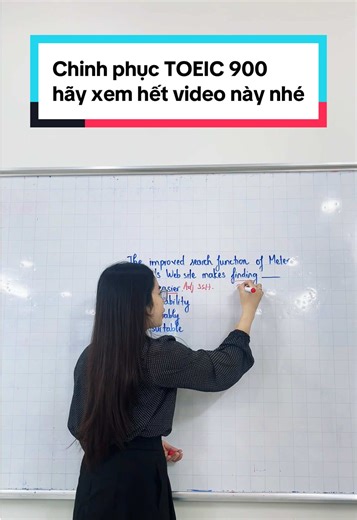 Chinh phục TOEIC 900
hãy xem hết video này nhé
The improved search function of Mele
's Web site makes finding ___
easier Adj SSH.
suitable